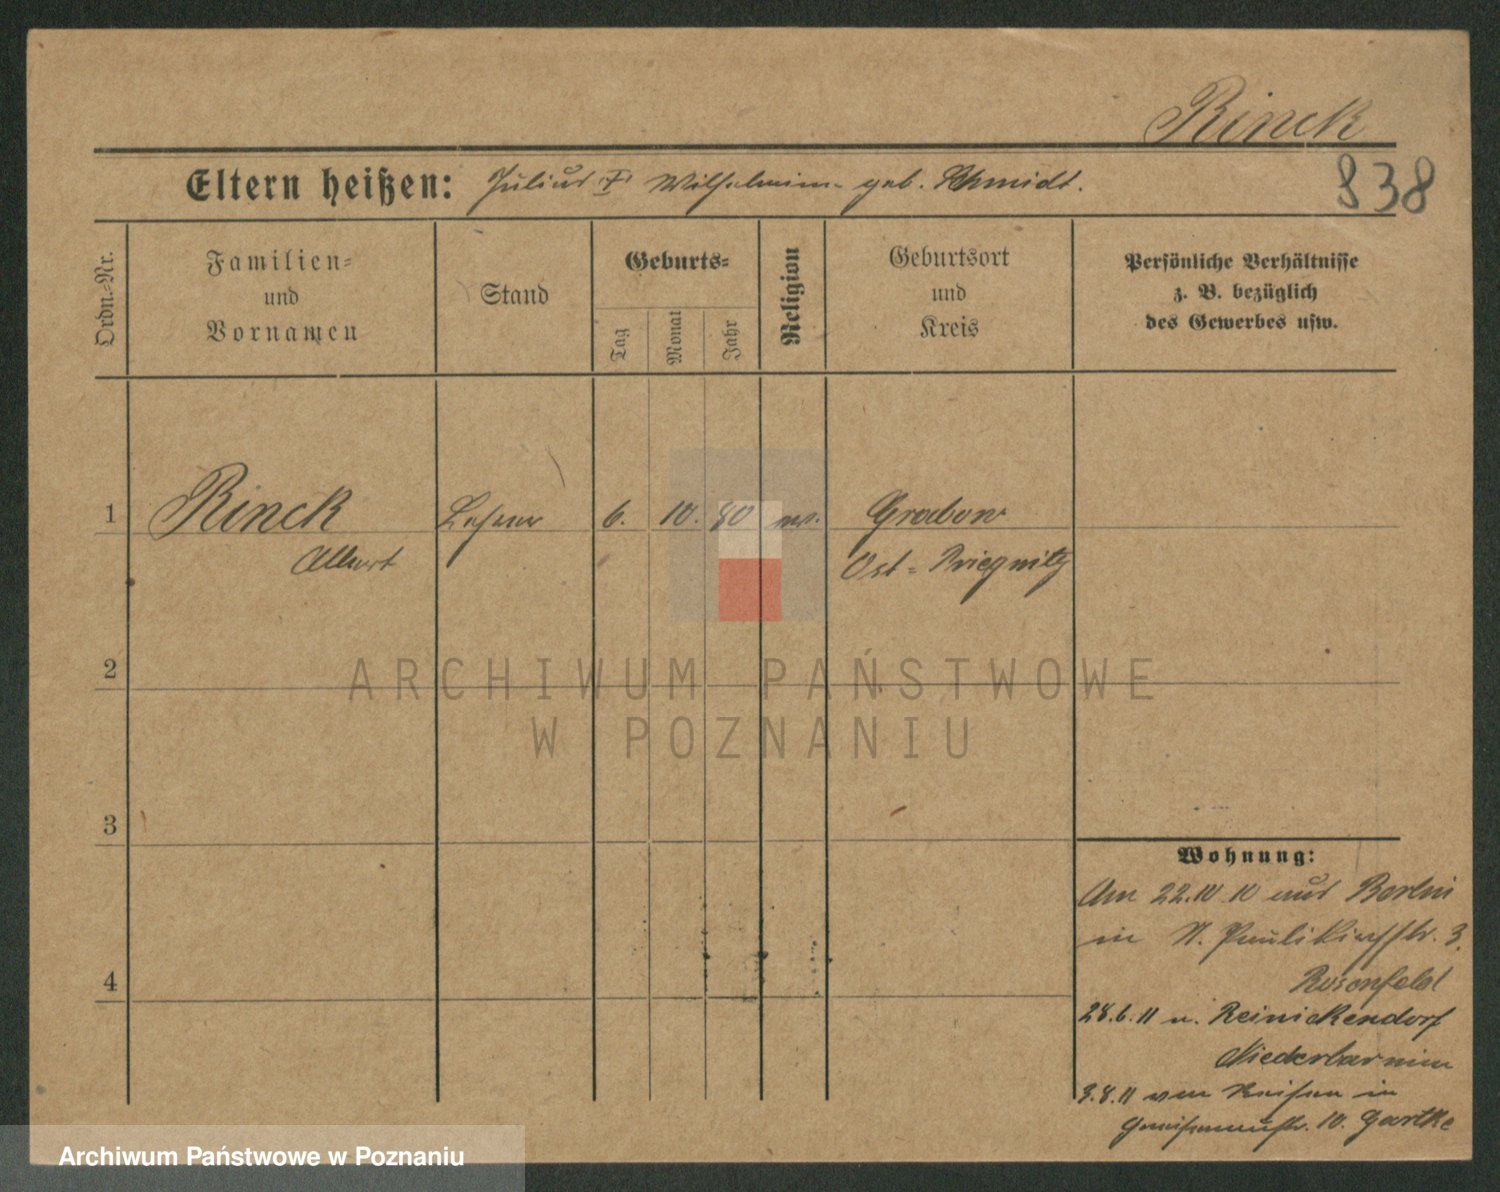 Rinck
838
Eltern heißen: Julius † Wilhelmine geb. Schmidt.
Ordn.-Nr.
Familien-
und
Vornamen
Stand
Geburts-
Tag
Monat
Jahr
Religion
Geburtsort
und
Kreis
Persönliche Verhältnisse
z. B. bezüglich
des Gewerbes usw.
1
Rinck
Albert
Lehrer
6.
10.
80
ev.
Grabow
Ost-Priegnitz
2
3
4
ARCHIWUM PAŃSTWOWE
W POZNANIU
Wohnung:
Am 22.10 10 aus Berlin
in St. Paulikirchstr. 3.
Rosenfeld
28.6.11 n. Reinickendorf
Niederbarnim
3.8.11 von Reisen in
Gneisenaustr. 10. Gartke
Archiwum Państwowe w Poznaniu